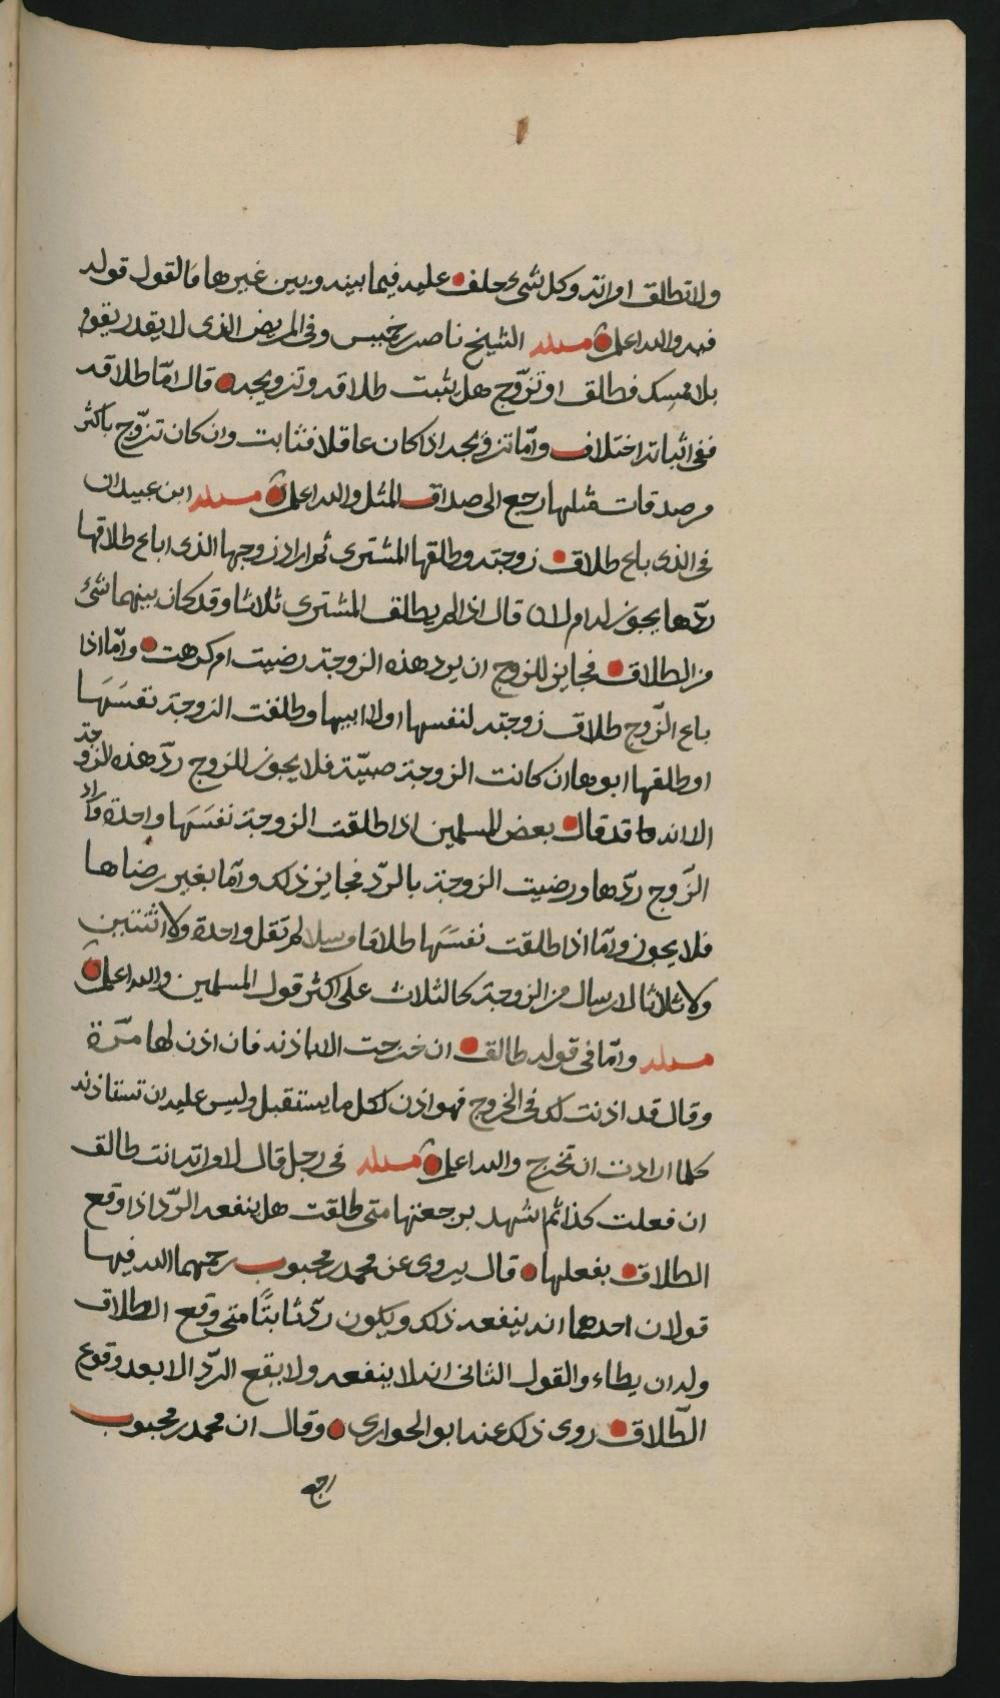 ولا تطلق امراته وكل شي حلف عليه فيما بينه وبين غيرها فالقول قوله
فيه والله اعلم مسئله الشيخ ناصر بن خميس وفي المريض الذي لا يقدر يقوم
بلا ممسك فطلق او تزوّج هل يثبت طلاقه وتزويجه قال امّا طلاقه
ففي اثباته اختلاف وامّا تزويجه اذا كان عاقلا فثابت وان كان تزوّج باكثر
من صدقات مثلها رجع الى صداق المثل والله اعلم مسئله ابن عبيدان
في الذي باع طلاق زوجته وطلقها المشتري ثم اراد زوجها الذي اباع طلاقها
ردّها يجوز له ام لا قال اذا لم يطلق المشتري ثلاثا وقد كان بينهما شئ
من الطلاق فجايز للزوج ان يرد هذه الزوجة رضيت ام كرهت وامّا اذا
باع الزّوج طلاق زوجته لنفسها او لابيها وطلقت الزوجة نفسَهَا
او طلقها ابوها ان كانت الزوجة صبيّة فلا يجوز للزوج ردّ هذه الزوجة
الا انه قد قال بعض المسلمين اذا طلقت الزوجة نفسَهَا واحدة واراد
الزّوج ردّها ورضيت الزوجة بالردّ فجايز ذلك وامّا بغير رضاها
فلا يجوز وامّا اذا طلقت نفسَهَا طلاقا مرسلا لم تقل واحدة ولا اثنتين
ولا ثلاثا الارسال من الزوجة كالثلاث على اكثر قول المسلمين والله اعلم
مسئله وامّا في قوله طالق ان خرجت الا باذنه فان اذن لها مرّة
وقال قد اذنت لك في الخروج فهو اذن لكل ما يستقبل وليس عليه ان تستاذنه
كلما ارادت ان تخرج والله اعلم مسئله في رجل قال لامراته انت طالق
ان فعلت كذا ثم اشهد برجعتها متى طلقت هل ينفعه الرّد اذا وقع
الطلاق بفعلها قال يروى عن محمد بن محبوب رحمهما الله فيها
قولان احدهما انه ينفعه ذلك ويكون ردّ ثابتًا متى وقع الطلاق
وله ان يطاء والقول الثاني انه لا ينفعه ولا يقع الردّ الا بعد وقوع
الطّلاق روى ذلك عنه ابو الحواري وقال ان محمد بن محبوب